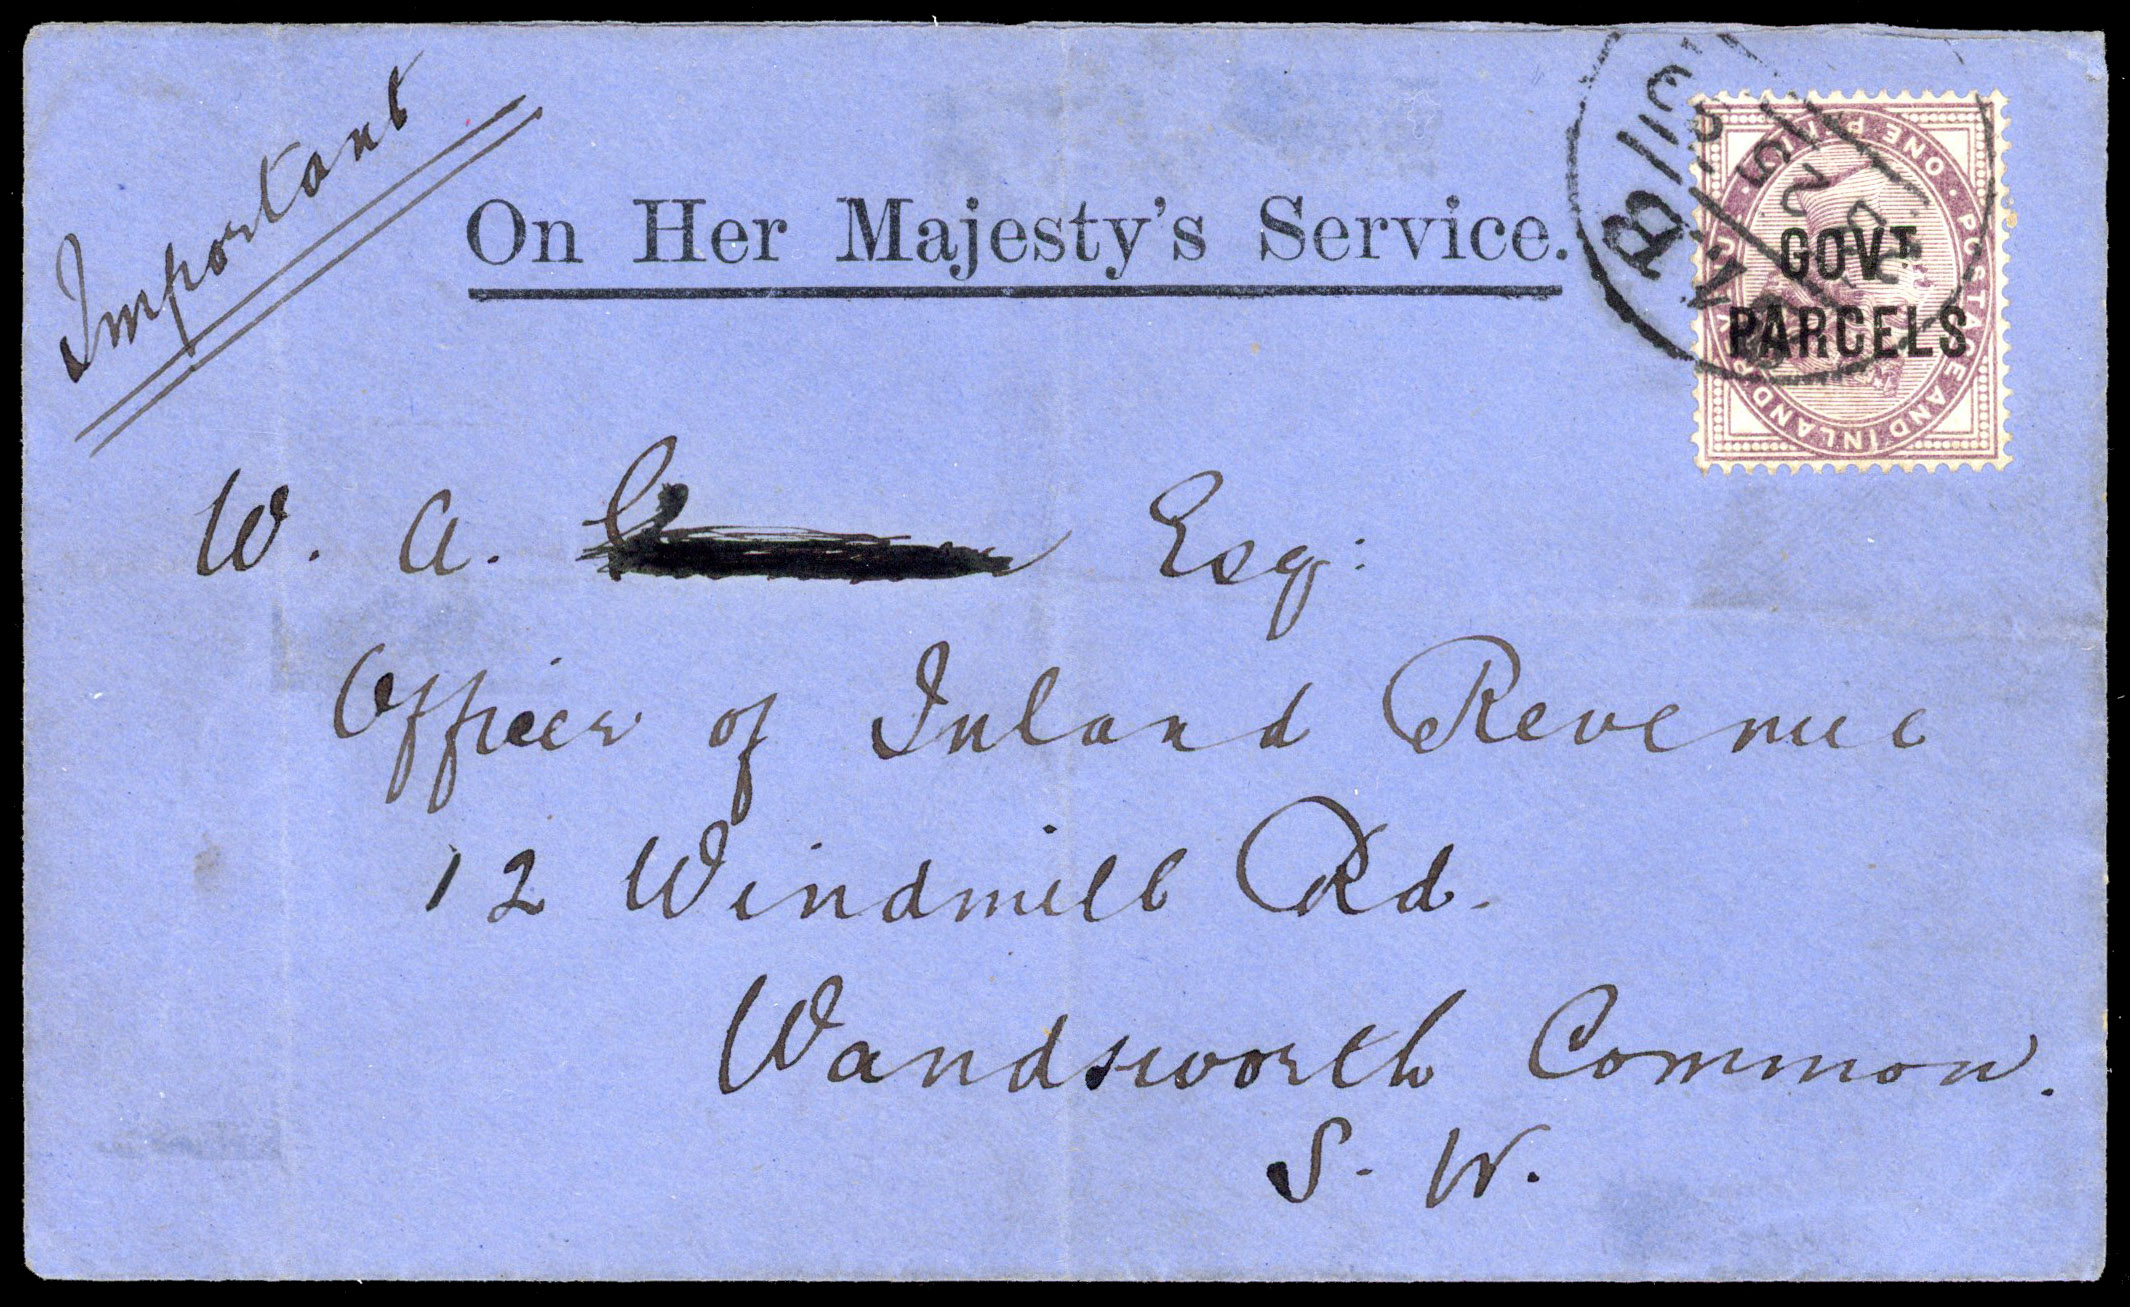 Important
On Her Majesty's Service.
W. A. Esq:
Officer of Inland Revenue
12 Windmill Rd.
Wandsworth Common.
S. W.
GOVT
PARCELS
POSTAGE AND INLAND REVENUE
ONE PENNY